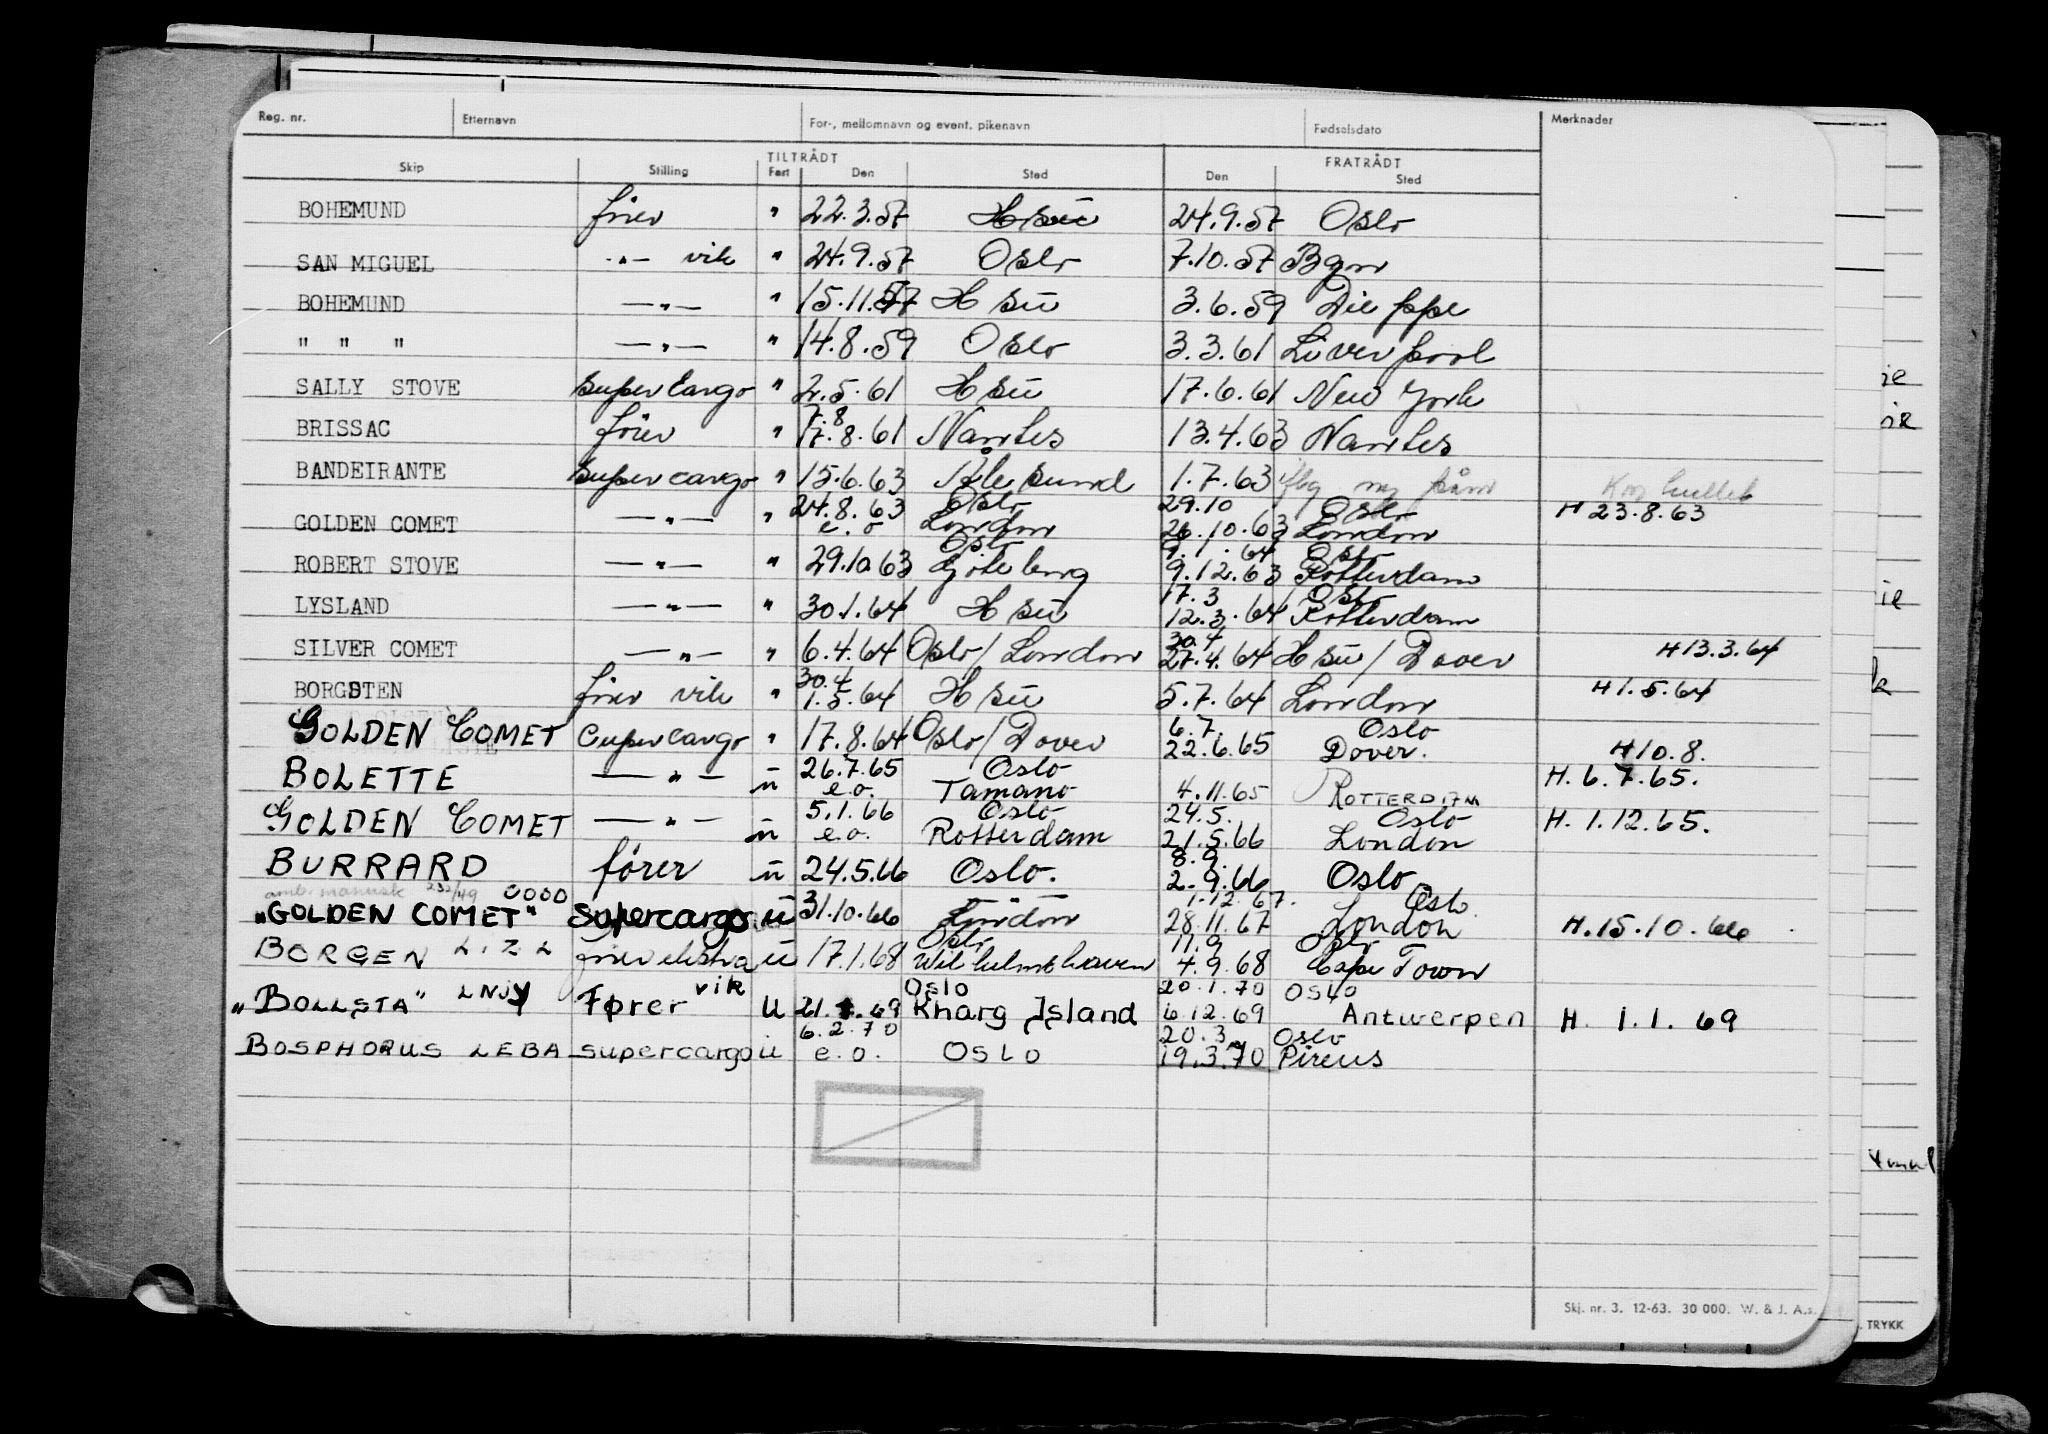 Reg. nr. Etternavn For-, mellomnavn og event. pikenavn Fødselsdato Merknader
TILTRÅDT FRATRÅDT
Skip Stilling Fart Den Sted Den Sted
BOHEMUND fører " 22.3.57 H su 24.9.57 Oslo
SAN MIGUEL -"- vik " 24.9.57 Oslo 7.10.57 Bgn
BOHEMUND -"- " 15.11.57 H su 3.6.59 Dieppe
" " " -"- " 14.8.59 Oslo 3.3.61 Liverpool
SALLY STOVE Supercargo " 2.5.61 H su 17.6.61 New York
7.8
BRISSAC fører " 17.8.61 Nantes 13.4.63 Nantes
BANDEIRANTE Supercargo " 15.6.63 Ålesund 1.7.63
24.8.63 Oslo 29.10 Oslo H 23.8.63
GOLDEN COMET -"- " e.o London 26.10.63 London
Oslo 9.1.64 Oslo
ROBERT STOVE -"- " 29.10.63 Göteborg 9.12.63 Rotterdam
17.3 Oslo
LYSLAND -"- " 30.1.64 H su 12.3.64 Rotterdam
30.4
SILVER COMET -"- " 6.4.64 Oslo/London 27.4.64 H su/Dover H 13.3.64
30.4
BORGSTEN fører vik " 1.5.64 H su 5.7.64 London H 1.5.64
6.7. Oslo
GOLDEN COMET Supercargo " 17.8.64 Oslo/Dover 22.6.65 Dover. H 10.8.
26.7.65 Oslo
BOLETTE -"- ü e.o. Tamano 4.11.65 ROTTERDAM H. 6.7.65.
5.1.66 Oslo 24.5. Oslo
GOLDEN COMET -"- ü e.o. Rotterdam 21.5.66 London H. 1.12.65.
8.9.
BURRARD fører ü 24.5.66 Oslo. 2.9.66 Oslo
232/49 0000 1.12.67. Oslo
"GOLDEN COMET" Supercargo ü 31.10.66 London 28.11.67 London H. 15.10.66
Oslo 11.9 Oslo
BORGEN LIZL fører ekstra ü 17.1.68 Wilhelmshaven 4.9.68 Cape Town
vik Oslo 20.1.70 OSLO
"BOLLSTA" LNJY Fører U 21.1.69 Kharg Island 6.12.69 Antwerpen H. 1.1.69
6.2.70 20.3 Oslo
BOSPHORUS LEBA supercargo ü e.o. OSLO 19.3.70 Pireus
Skj. nr. 3. 12-63. 30 000. W. & J. A.s.
TRYKK